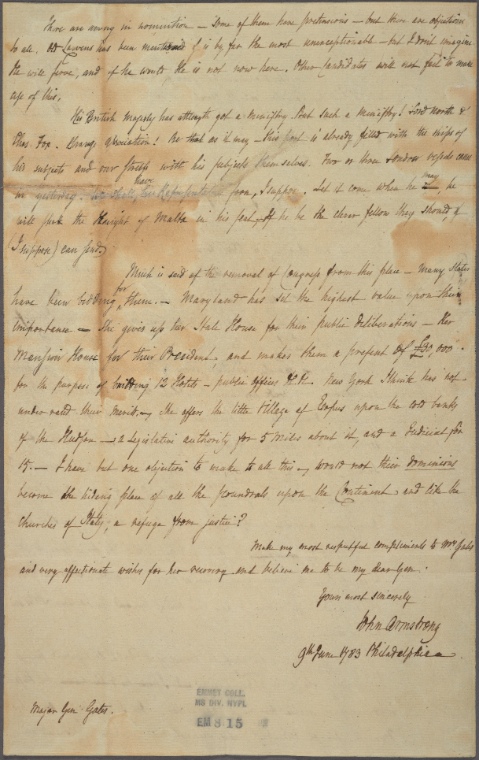 There are many in nomination – some of them have pretensions – but there are objections
to all. Dr Cavens has been mentioned & is by far the most unexceptionable – but I don't imagine
He will serve, and if he would He is not now here. Other Candidates will not fail to make
use of this.
His British Majesty has at length got a Ministry. But such a Ministry! Lord North &
Chas Fox. Strange association! Be that as it may – this port is already filled with the ships of
his subjects and our streets with his subjects themselves. Two or three London vessels came
in yesterday. We shall have from, I suppose. Let it come when he may, he
will find the Knight of Malta in his . If he be the clever fellow they should, (&
I suppose) can send.
Much is said of the removal of Congress from this place – many States
have been bidding for them. – Maryland has set the highest value upon their
importance. – She gives up her State House for their public deliberations – Her
Mansion House for their President, and makes them a present of £30,000
for the purpose of building 12 Hotels – public offices &c &c. New York I think has not
under-rated their merit. – She offers the little Village of Esopus upon the cold banks
of the Hudson – a Legislative authority for 5 Miles about it, and a Judicial for
15. – I have but one objection to make to all this – would not their dominions
become the hiding place of all the scoundrels upon the Continent and like the
churches of Italy, a refuge from justice?
Make my most respectful compliments to Mrs Gates
and very affectionate wishes for her recovery and believe me to be my dear Gen.
Yours most sincerely
John Armstrong
9th June 1783 Philadelphia
EMMET COLL.
MS DIV. NYPL
EM 8 15
Major Gen Gates.